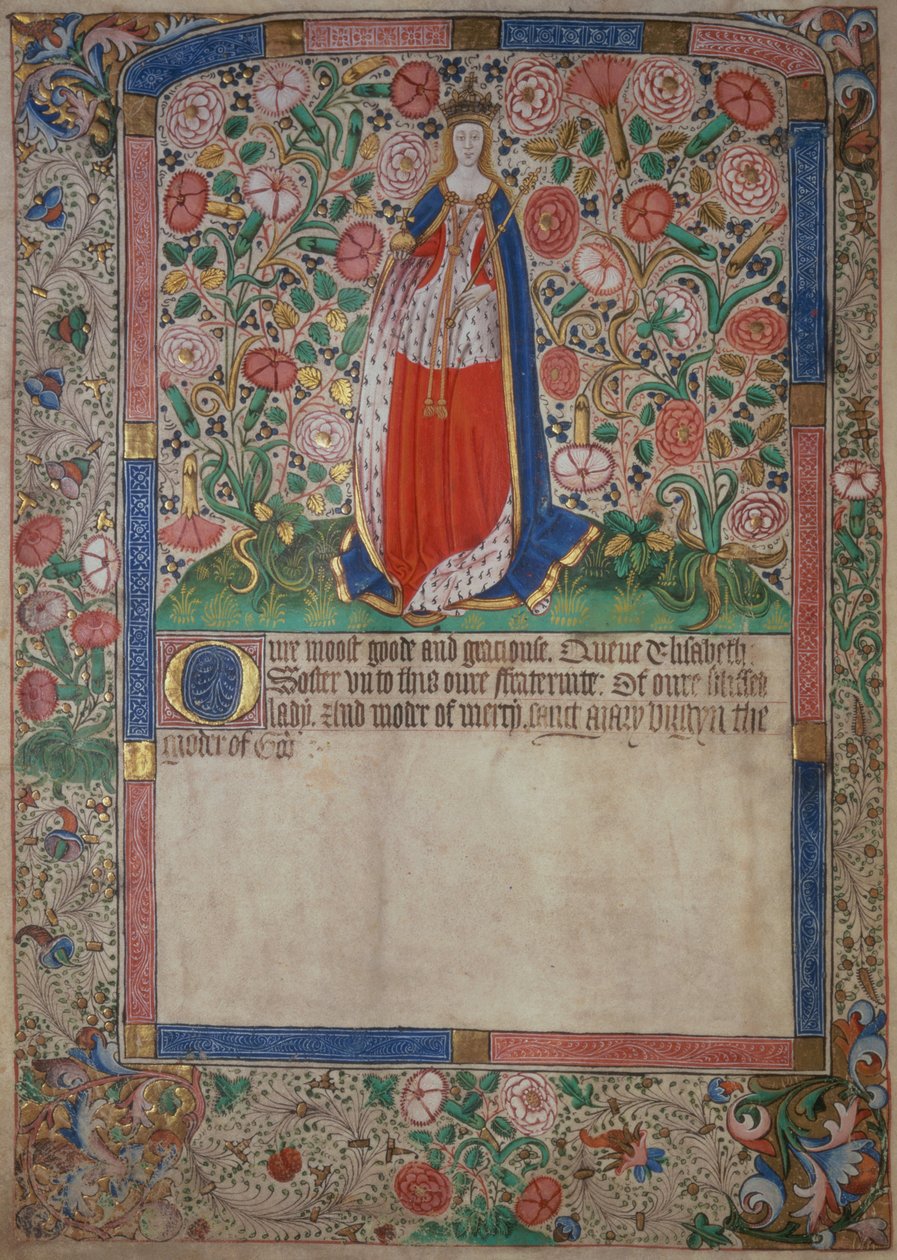 Oure moost goode and graciouse. Queue Elisabeth:
Soster vn to this oure ffraternite: Of oure blissed
lady. And modr of mercy. sanct Mary virgyn the
modr of God